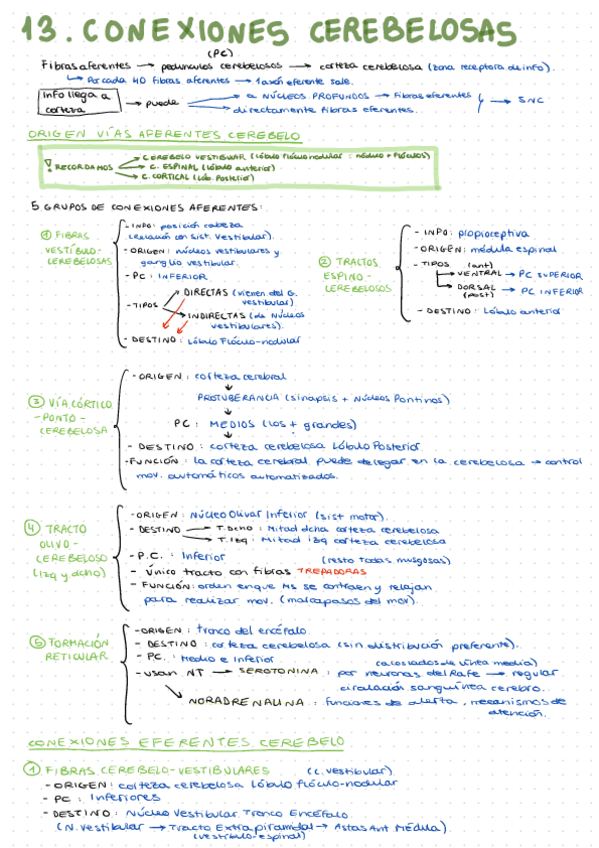 13. CONEXIONES CEREBELOSAS
(PC)
Fibras aferentes → pedúnculos cerebelosos → corteza cerebelosa (zona receptora de info).
↳ Por cada 40 fibras aferentes → 1 axón eferente sale.
Info llega a corteza → puede → a NÚCLEOS PROFUNDOS → Fibras eferentes → SNC
→ directamente fibras eferentes.
ORIGEN VÍAS AFERENTES CEREBELO
! RECORDAMOS → CEREBELO VESTIBULAR (Lóbulo flóculonodular : nódulo + flóculos)
→ C. ESPINAL (lóbulo anterior)
→ C. CORTICAL (Lób. Posterior)
5 GRUPOS DE CONEXIONES AFERENTES:
① FIBRAS VESTÍBULO-CEREBELOSAS
- INFO: posición cabeza
(relación con sist. vestibular).
- ORIGEN: núcleos vestibulares y
ganglio vestibular.
- PC: INFERIOR
- TIPOS → DIRECTAS (vienen del G. vestibular)
→ INDIRECTAS (de Núcleos vestibulares).
- DESTINO: Lóbulo Flóculo-nodular
② TRACTOS ESPINO-CEREBELOSOS
- INFO: propioceptiva
- ORIGEN: médula espinal
- TIPOS (ant)
→ VENTRAL → PC SUPERIOR
→ DORSAL → PC INFERIOR
(post)
- DESTINO: Lóbulo anterior
③ VÍA CÓRTICO-PONTO-CEREBELOSA
- ORIGEN: corteza cerebral
↓
PROTUBERANCIA (sinapsis + Núcleos Pontinos)
↓
PC: MEDIOS (los + grandes)
↓
- DESTINO: corteza cerebelosa Lóbulo Posterior
- FUNCIÓN: la corteza cerebral puede delegar en la cerebelosa → control
mov. automáticos automatizados.
④ TRACTO OLIVO-CEREBELOSO (izq y dcho)
- ORIGEN: NÚCLEO Olivar Inferior (sist motor).
- DESTINO → T. Dcho: Mitad dcha corteza cerebelosa
→ T. Izq: Mitad izq corteza cerebelosa
- P.C.: Inferior (resto todas musgosas)
- Único tracto con fibras TREPADORAS
- FUNCIÓN: orden en que Ms se contraen y relajan
para realizar mov. (marcapasos del mov).
⑤ FORMACIÓN RETICULAR
- ORIGEN: Tronco del encéfalo.
- DESTINO: corteza cerebelosa (sin distribución preferente).
- PC: Medio e Inferior
(a los lados de línea media)
- usan NT → SEROTONINA: por neuronas del Rafe → regular
circulación sanguínea cerebro.
↘ NORADRENALINA: funciones de alerta, mecanismos de
atención.
CONEXIONES EFERENTES CEREBELO
① FIBRAS CEREBELO-VESTIBULARES (c. vestibular)
- ORIGEN: corteza cerebelosa lóbulo flóculo-nodular
- PC: Inferiores
- DESTINO: Núcleo Vestibular Tronco Encéfalo
(N. vestibular → Tracto Extrapiramidal → Astas Ant Médula)
(vestíbulo-espinal)